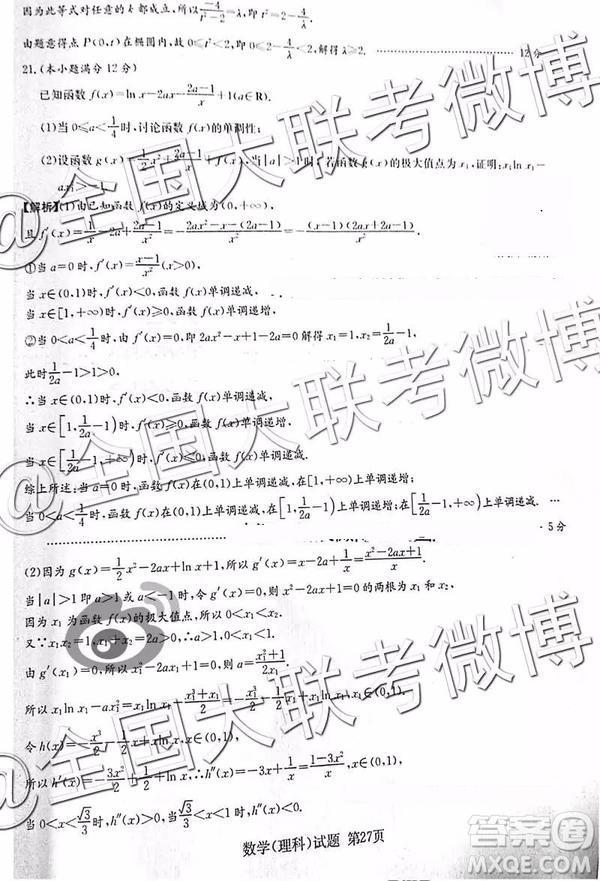 因为此等式对任意的k都成立,所以\frac{-4}{t²-2}=λ,即t²=2-\frac{4}{λ}.
由题意得点P(0,t)在椭圆内,故0≤t²<2,即0≤2-\frac{4}{λ}<2,解得λ≥2. 12分
21.(本小题满分12分)
已知函数f(x)=ln x-2ax-\frac{2a-1}{x}+1(a∈R).
(1)当0≤a<\frac{1}{4}时,讨论函数f(x)的单调性;
(2)设函数g(x)=\frac{1}{2}x²+\frac{2a-1}{x}+f(x),当|a|>1时,若函数g(x)的极大值点为x₁,证明:x₁ln x₁-
ax₁²>-1.
【解析】(1)由已知函数f(x)的定义域为(0,+∞),
且f′(x)=\frac{1}{x}-2a+\frac{2a-1}{x²}=-\frac{2ax²-x-(2a-1)}{x²}=-\frac{(x-1)(2ax+2a-1)}{x²}.
①当a=0时,f′(x)=\frac{x-1}{x²}(x>0),
当x∈(0,1)时,f′(x)<0,函数f(x)单调递减,
当x∈(1,+∞)时,f′(x)>0,函数f(x)单调递增,
②当0<a<\frac{1}{4}时,由f′(x)=0,即2ax²-x+1-2a=0解得x₁=1,x₂=\frac{1}{2a}-1,
此时\frac{1}{2a}-1>1>0,
∴当x∈(0,1)时,f′(x)<0,函数f(x)单调递减,
当x∈[1,\frac{1}{2a}-1)时,f′(x)>0,函数f(x)单调递增,
当x∈[\frac{1}{2a}-1,+∞)时,f′(x)<0,函数f(x)单调递减.
综上所述:当a=0时,函数f(x)在(0,1)上单调递减,在[1,+∞)上单调递增;
当0<a<\frac{1}{4}时,函数f(x)在(0,1)上单调递减,在[1,\frac{1}{2a}-1)上单调递增,在[\frac{1}{2a}-1,+∞)上单调递减.
5分
(2)因为g(x)=\frac{1}{2}x²-2ax+ln x+1,所以g′(x)=x-2a+\frac{1}{x}=\frac{x²-2ax+1}{x},
当|a|>1即a>1或a<-1时,
因为x₁为函数f(x)的极大值点,所以0<x₁<x₂,
又∵x₁x₂=1,x₁+x₂=2a>0,∴a>1,0<x₁<1.
由g′(x₁)=0,所以x₁²-2ax₁+1=0,则a=\frac{x₁²+1}{2x₁},
所以x₁ln x₁-ax₁²=x₁ln x₁-\frac{x₁³+x₁}{2}=-\frac{x₁³}{2}-\frac{1}{2}x₁+x₁ln x₁,x₁∈(0,1),
令h(x)=-\frac{x³}{2}-\frac{1}{2}x+xln x,x∈(0,1),
所以h′(x)=-\frac{3x²}{2}+\frac{1}{2}+ln x,x∈(0,1),h″(x)=-3x+\frac{1}{x}=\frac{1-3x²}{x},x∈(0,1),
当0<x<\frac{√3}{3}时,h″(x)>0;当\frac{√3}{3}<x<1时,h″(x)<0,
数学(理科)试题 第27页
@全国大联考微博
@全国大联考微博
@全国大联考微博
答案圈
MXQE.COM